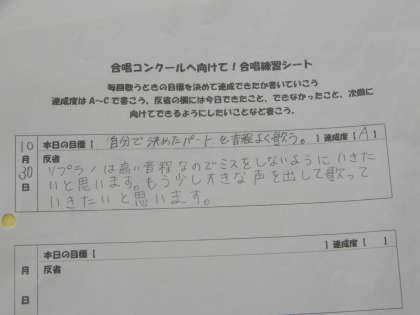 合唱コンクールへ向けて！合唱練習シート
毎回歌うときの目標を決めて達成できたか書いていこう
達成度はA～Cで書こう。反省の欄には今日できたこと、できなかったこと、次回に
向けてできるようにしたいことなど書こう。
10月30日
本日の目標【自分で決めたパートを音程よく歌う。】達成度【A】
反省
ソプラノは高い音程なのでミスをしないようにいきた
いと思います。もう少し大きな声を出して歌って
いきたいと思います。
月 日
本日の目標【 】達成度【 】
反省